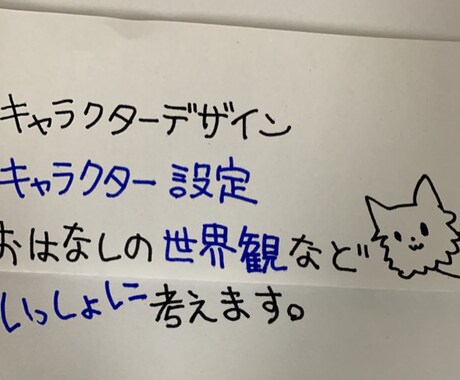 キャラクターデザイン
キャラクター設定
おはなしの世界観など
いっしょに考えます。